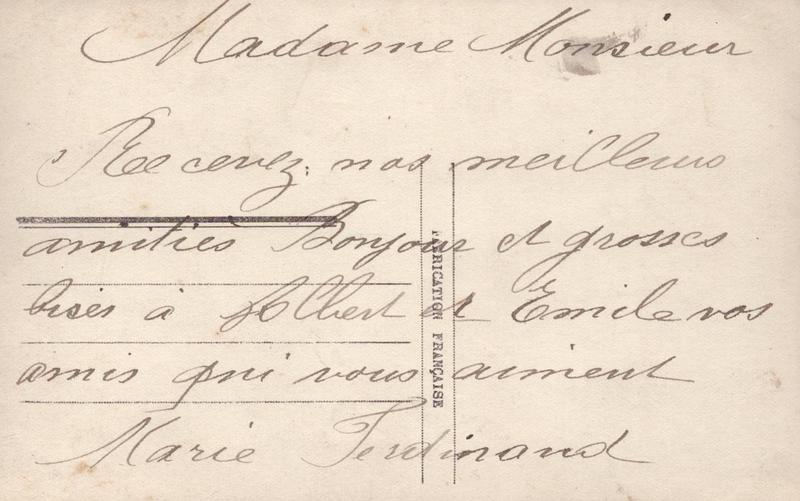 Madame Monsieur
Recevez nos meilleurs
amitiès Bonjour et grosses
bises à Albert et Emile vos
amis qui vous aiment
Marie Ferdinand
FABRICATION FRANÇAISE